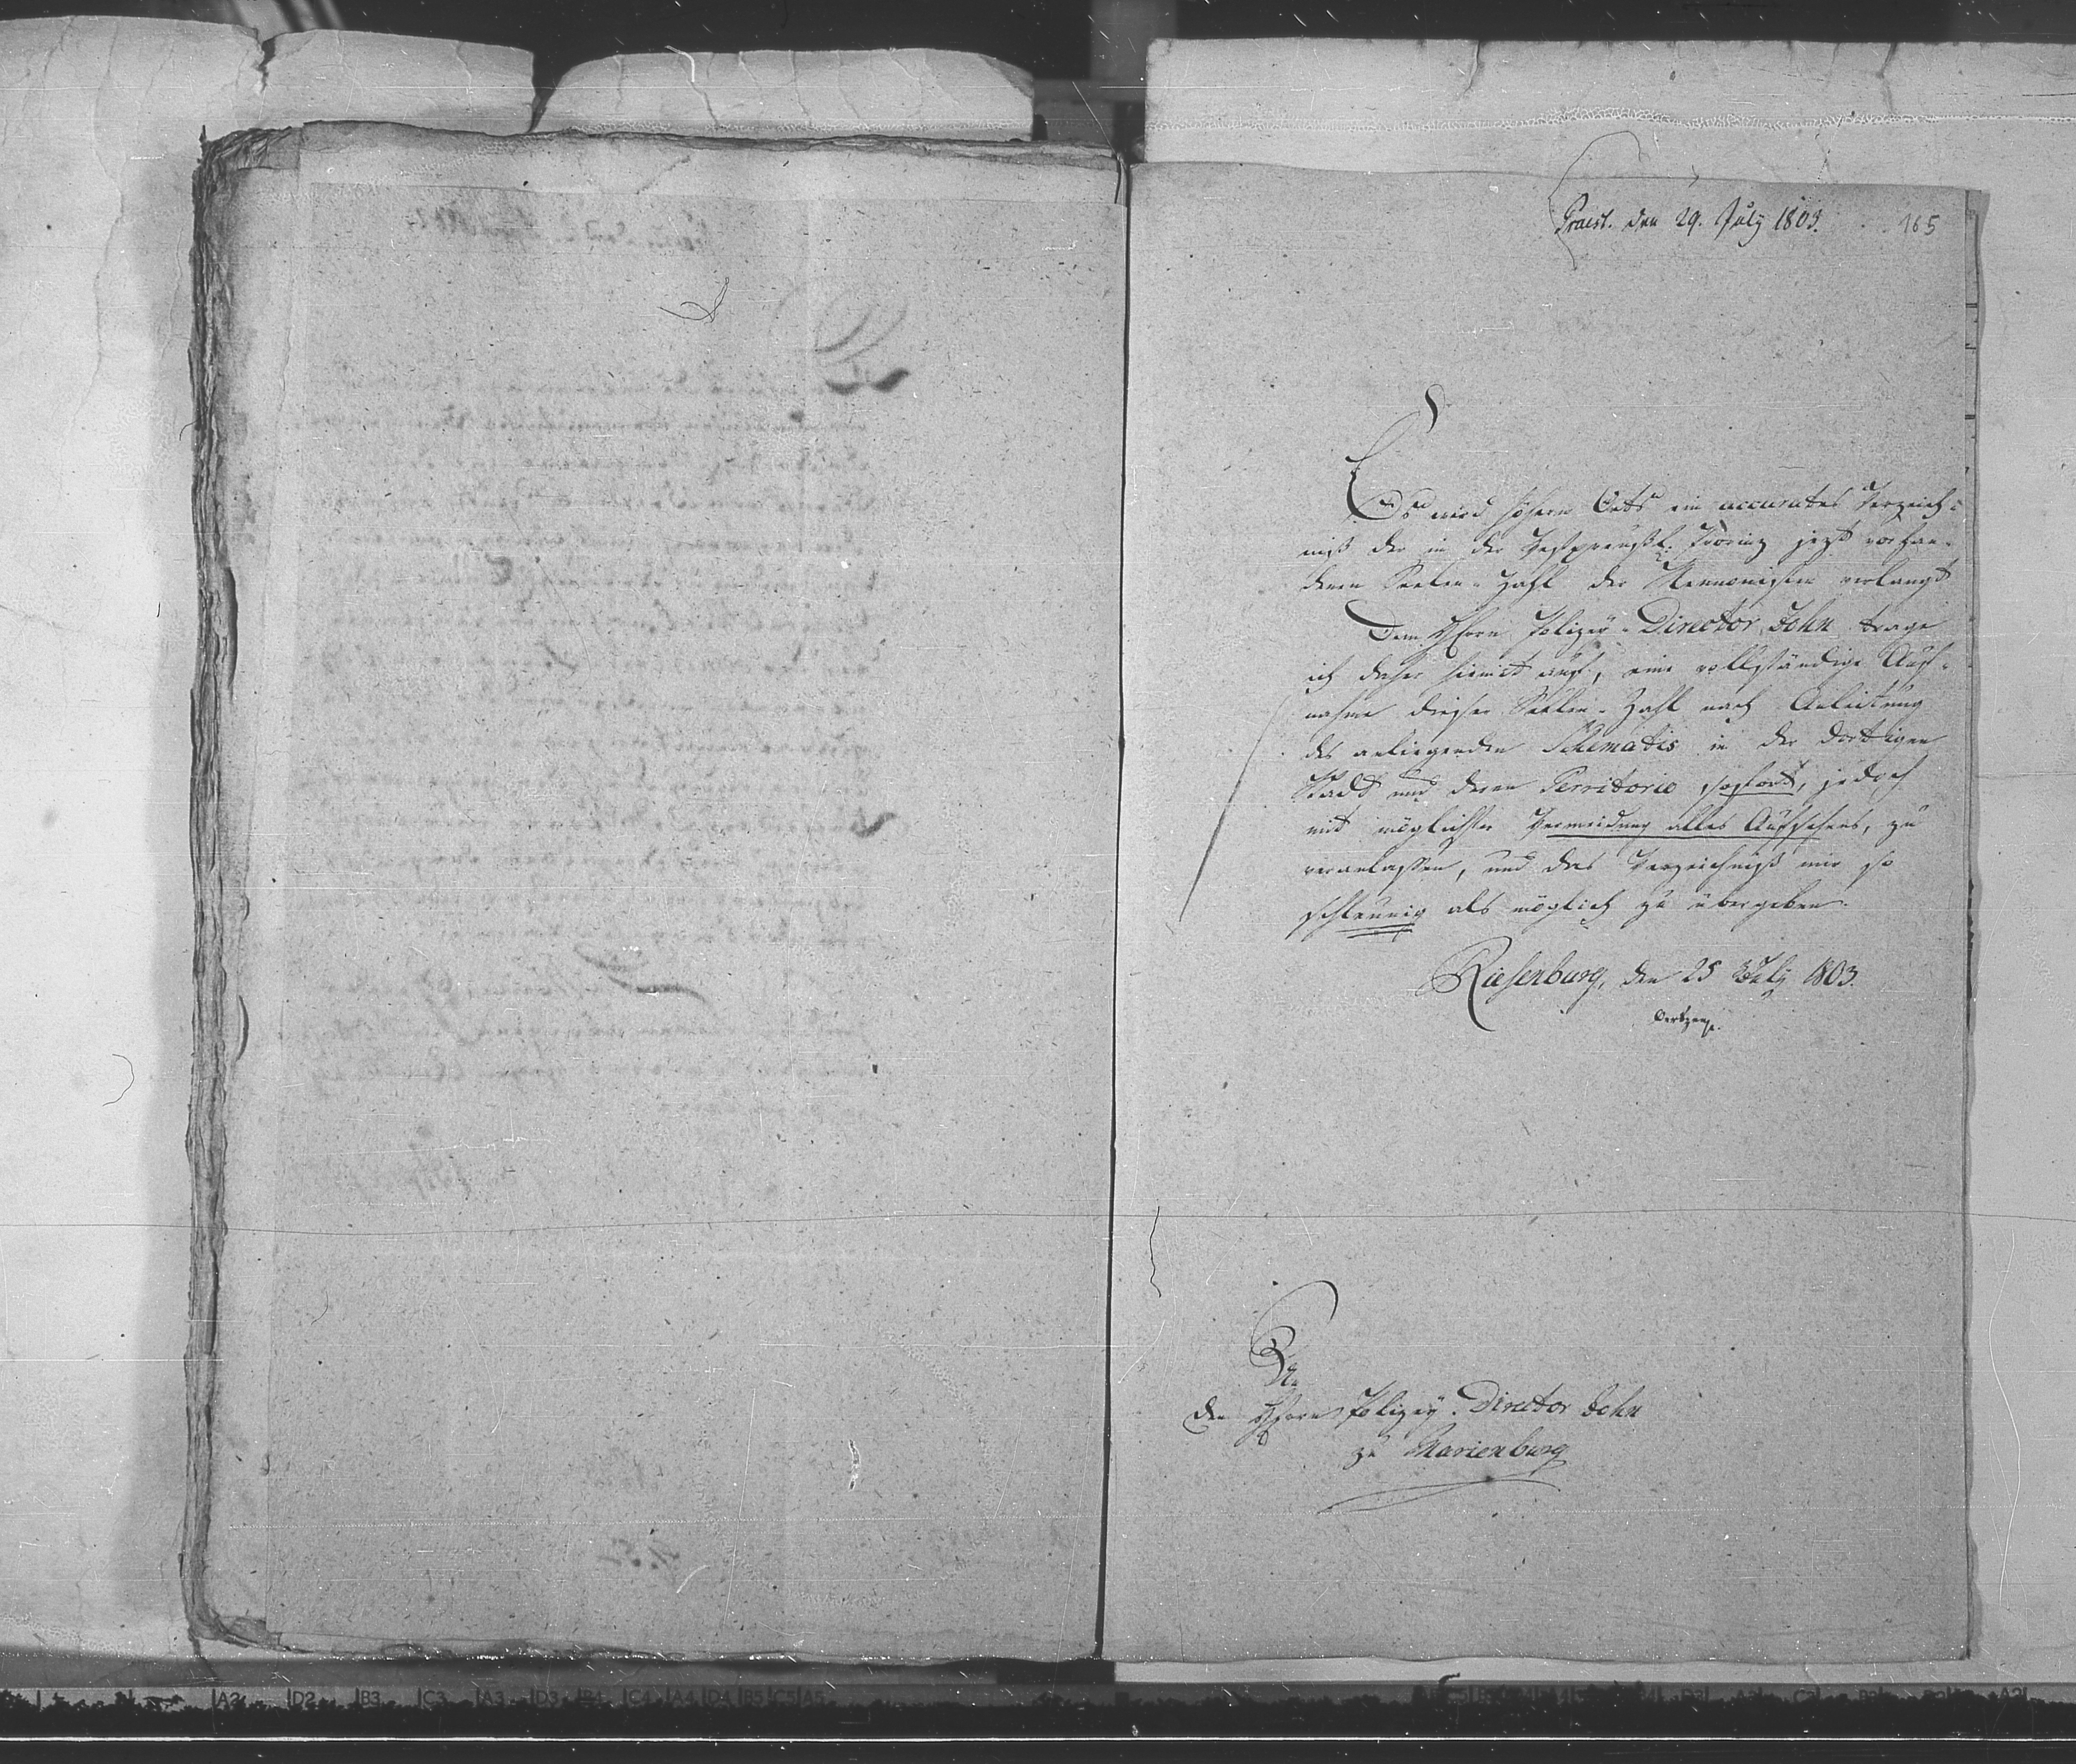 Praest. den 29. July 1803.
165
Es wird höhern Orts ein accurates Verzeich-
niß der in der Westpreußl. Provinz jezt vorhan-
denen Seelen-Zahl der Mennonisten verlangt
Dem Herrn Polizey-Director John trage
ich daher hiemit auf, eine vollständige Auf-
nahme dieser Seelen-Zahl nach Anleitung
des anliegenden Schematis in der dortigen
Stadt und deren Territorio sofort, jedoch
mit möglichster Vermeidung alles Aufsehens, zu
veranlassen, und das Verzeichniß mir so
schleunig als möglich zu übergeben.
Riesenburg, den 25 July 1803.
An
den Herrn Polizey-Director John
zu Marienburg